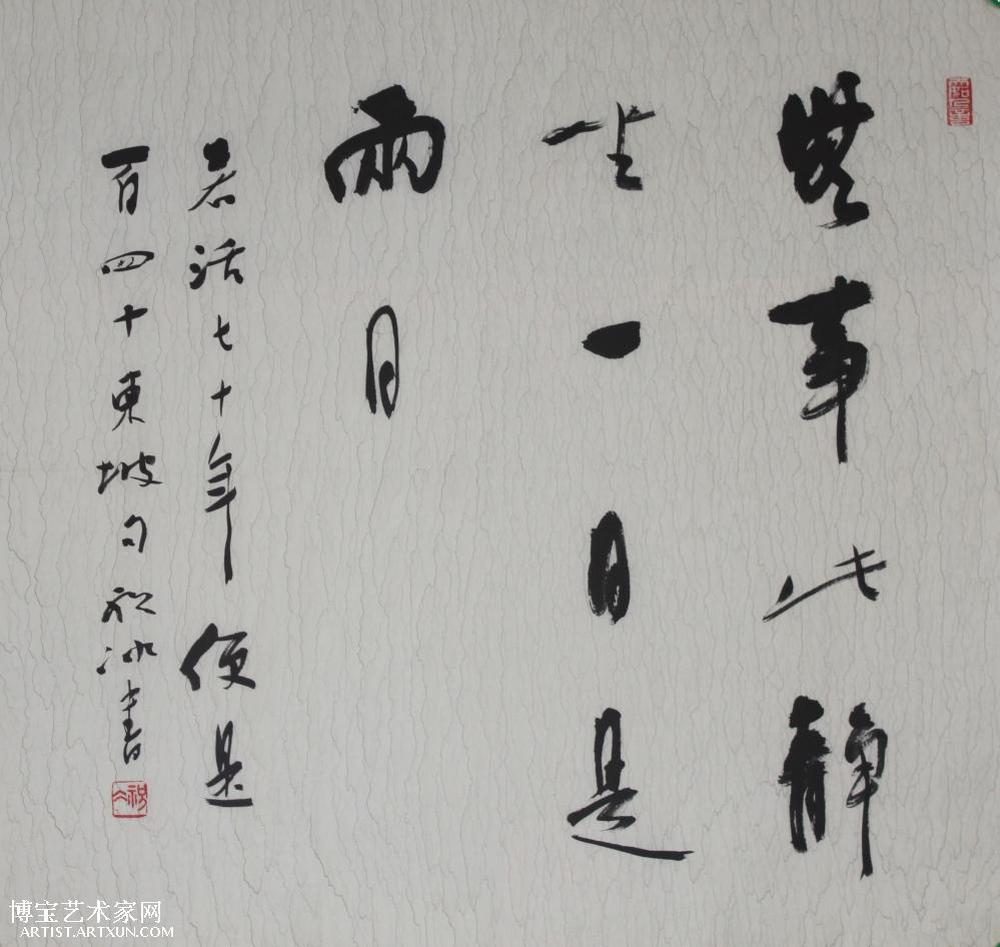 無事此静
坐一日是
兩月
若活七十年便是
百四十東坡句祝冰書
博宝艺术家网
ARTIST.ARTXUN.COM